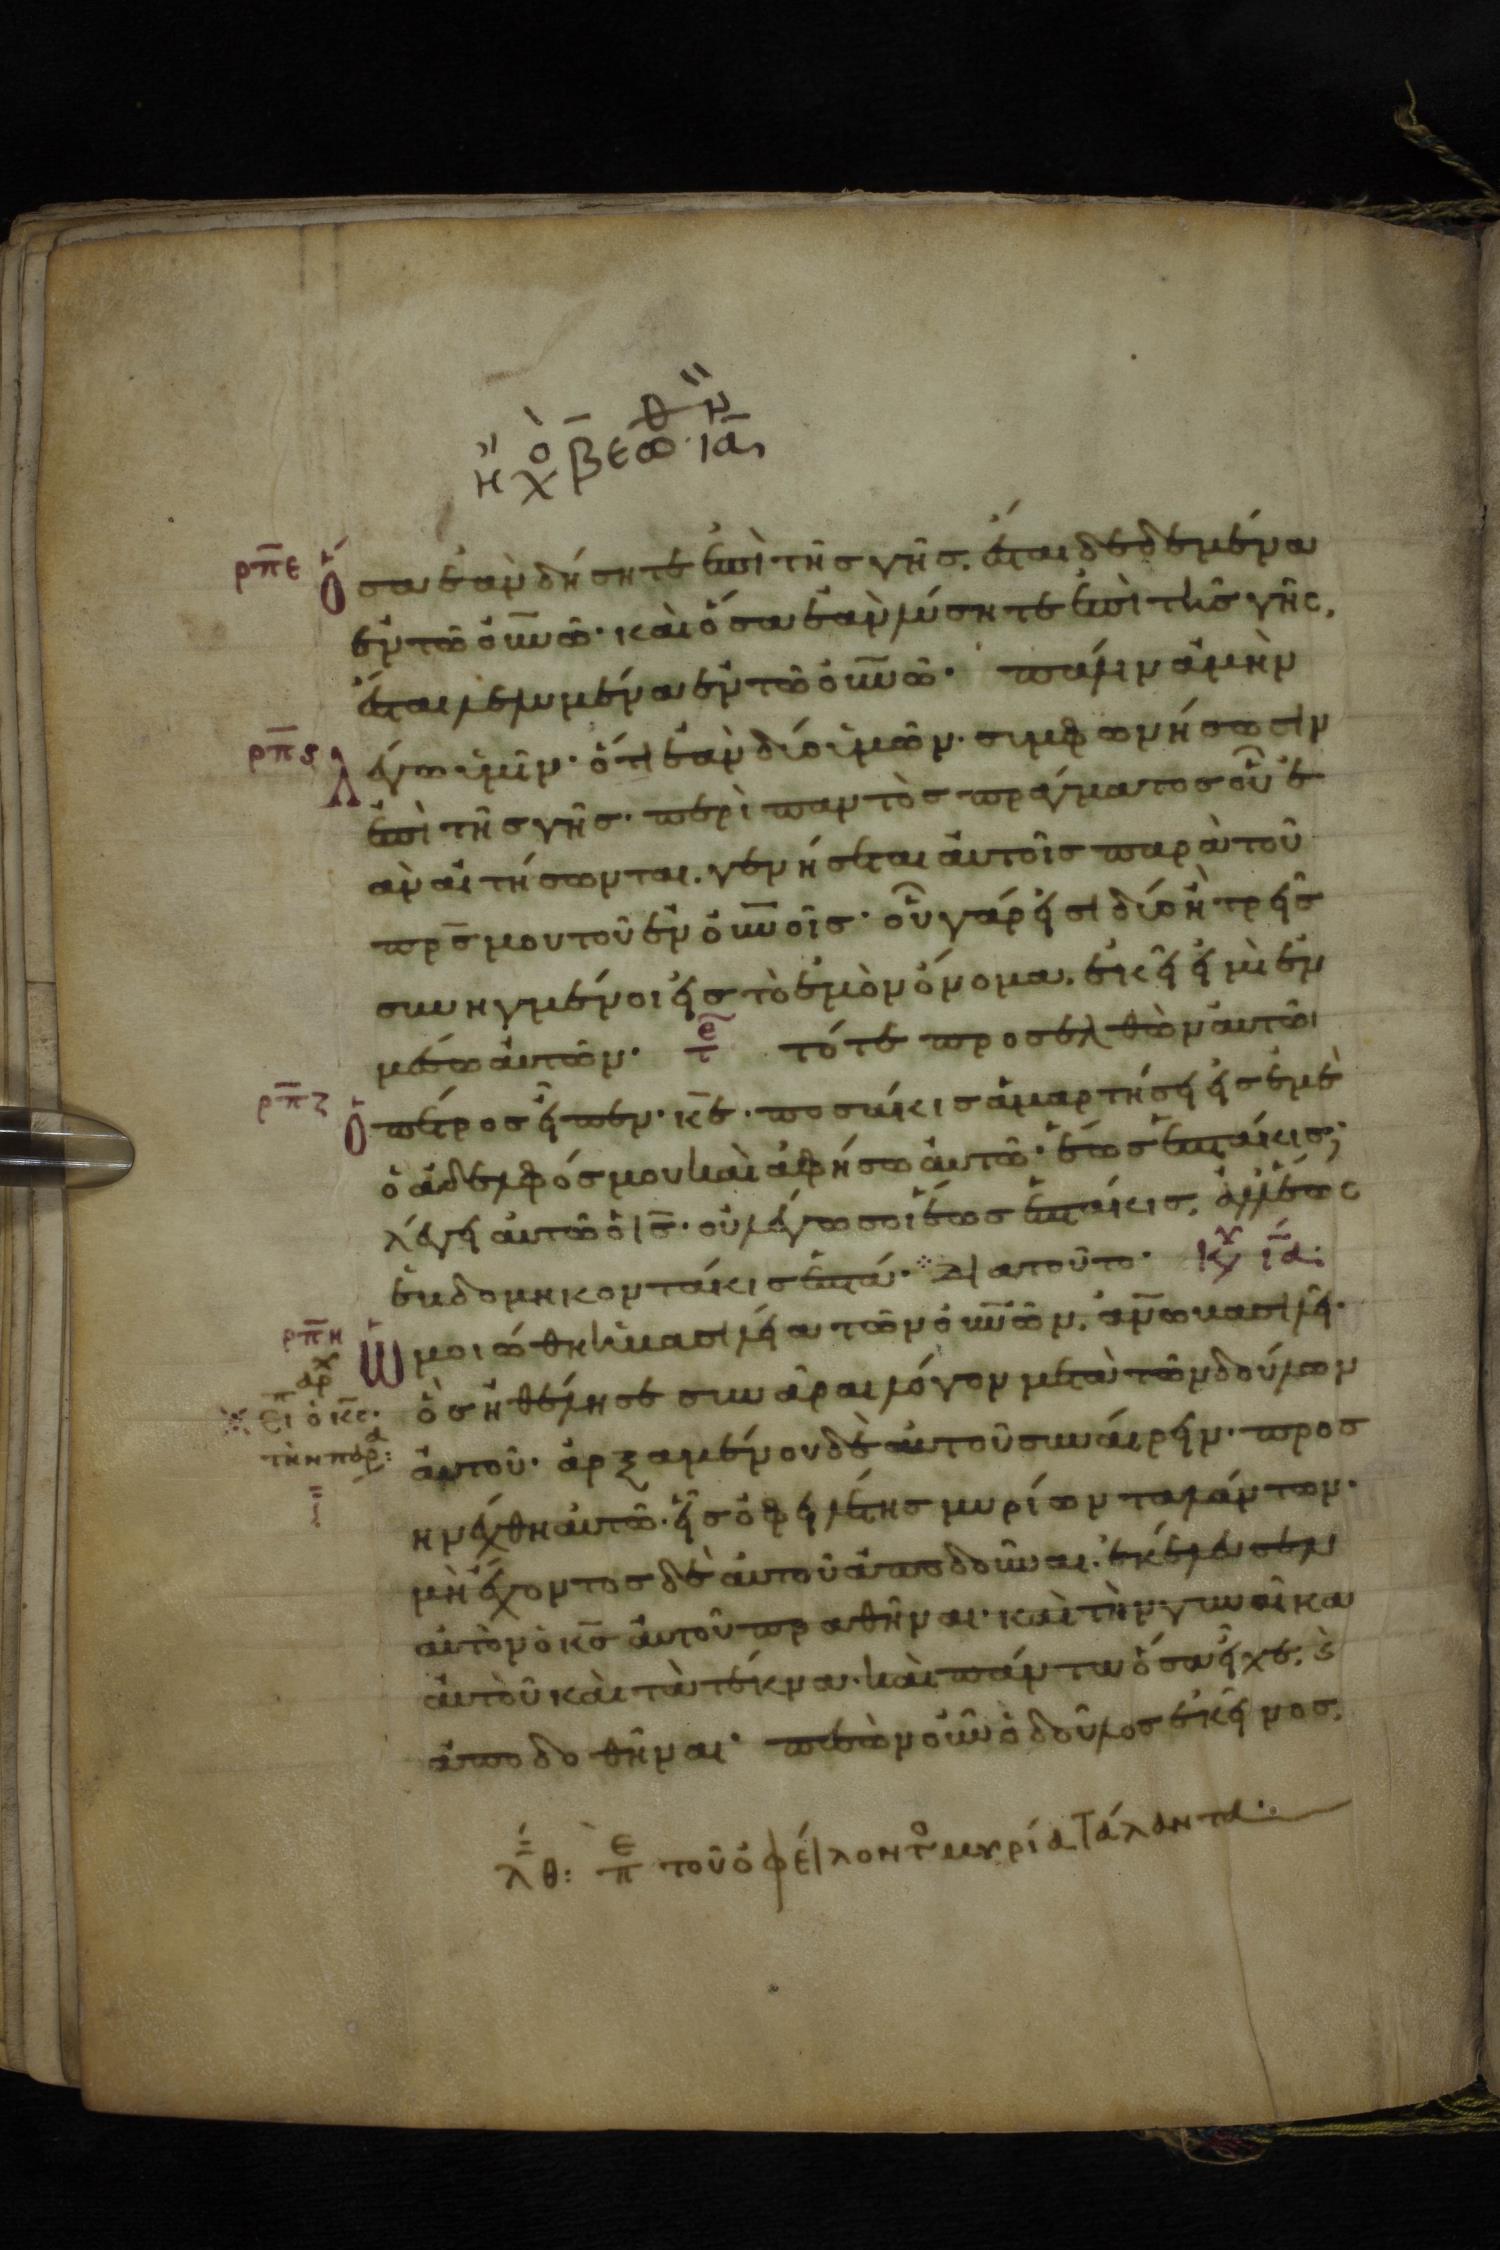 ρπε ὅσα ἐὰν δήσητε ἐπὶ τῆς γῆς. ἔσται δεδεμένα
ἐν τῶ οὐνῶ· καὶ ὅσα ἐὰν λύσητε ἐπὶ τῆς γῆς,
ἔσται λελυμένα ἐν τῶ οὐνῶ· πάλιν ἀμὴν
ρπϛ λέγω ὑμῖν· ὅτι ἐὰν δύο ὑμῶν· συμφωνήσωσιν
ἐπὶ τῆς γῆς· περὶ παντὸς πράγματος οὗ ἐ
ὰν αἰτήσωνται. γενήσεται αὐτοῖς παρὰ τοῦ
πρς μου τοῦ ἐν οὐνοῖς· οὗ γάρ εἰσι δύο ἢ τρεῖς
συνηγμένοι εἰς τὸ ἐμὸν ὄνομα. ἐκεῖ εἰμὶ ἐν
μέσω αὐτῶν· τε τότε προσελθὼν αὐτῶ
ρπζ ὁ πέτρος εἶπεν· κε· ποσάκις ἁμαρτήσει εἰς ἐμὲ
ὁ ἀδελφός μου καὶ ἀφήσω αὐτῶ· ἕως ἑπτάκις;
λέγει αὐτῶ ὁ ις· οὐ λέγω σοι ἕως ἑπτάκις. ἀλλ' ἕως
ἑβδομηκοντάκις ἑπτά· διατοῦτο· Κυ ια:
ρπη ὡμοιώθη ἡ βασιλεία τῶν οὐνῶν. ἀνω βασιλεῖ·
ὃς ἠθέλησε συνᾶραι λόγον μετὰ τῶν δούλων
αὐτοῦ· ἀρξαμένου δὲ αὐτοῦ συναίρειν· προσ
ηνέχθη αὐτῶ· εἷς ὀφειλέτης μυρίων ταλάντων·
μὴ ἔχοντος δὲ αὐτοῦ ἀποδοῦναι. ἐκέλευσεν
αὐτὸν ὁ κς αὐτοῦ πραθῆναι· καὶ τὴν γυναῖκα
αὐτοῦ καὶ τὰ τέκνα· καὶ πάντα ὅσα εἶχε. ϗ
ἀποδοθῆναι· πεσὼν οὖν ὁ δοῦλος ἐκεῖνος.
λθ: πε τοῦ ὀφείλοντο μυρία τάλαντα·